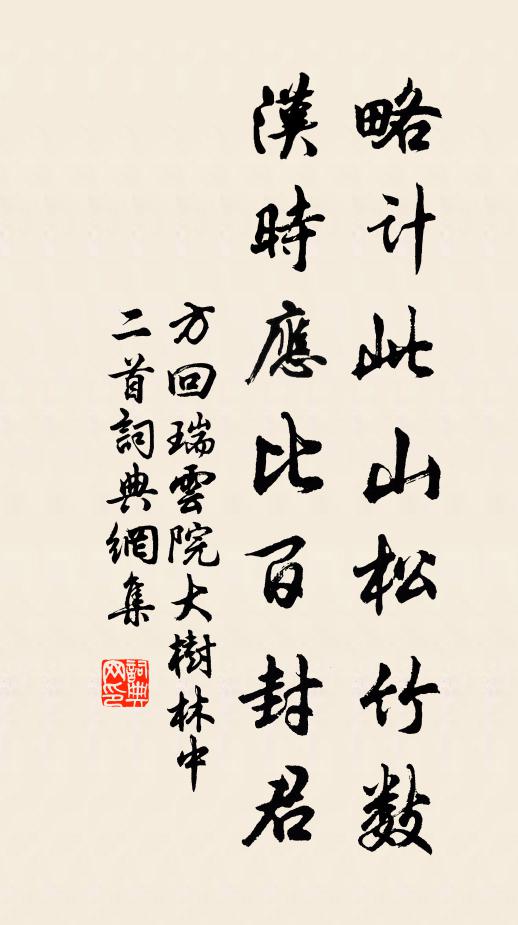 略計此山松竹數
漢時應比百封君
方回瑞雲院大樹林中
二首詞典網集
詞典
网印